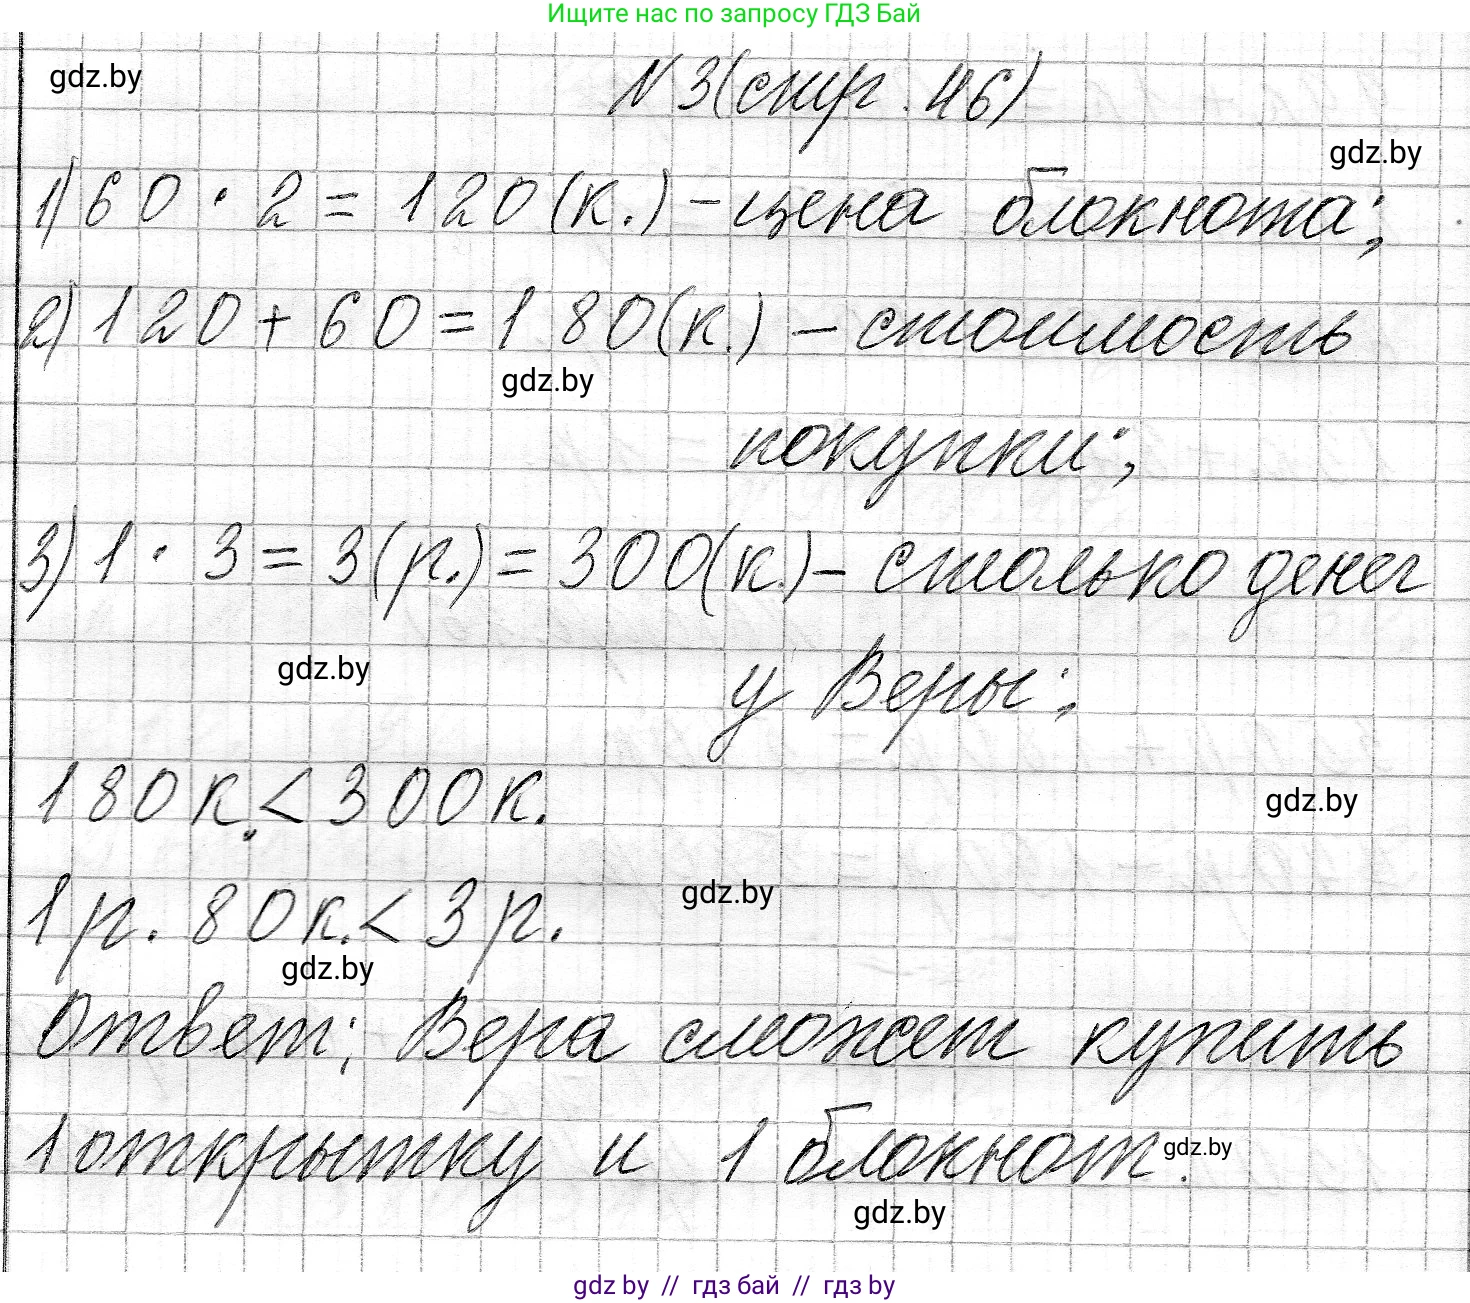 Ищите нас по запросу ГДЗ Бай
gdz.by
N 3 (стр. 46)
gdz.by
1) 60 · 2 = 120 (к.) – цена блокнота;
2) 120 + 60 = 180 (к.) – стоимость
gdz.by
покупки;
3) 1 · 3 = 3 (р.) = 300 (к.) – столько денег
gdz.by
у Веры;
180 к. < 300 к.
gdz.by
1 р. 80 к. < 3 р.
gdz.by
gdz.by
Ответ: Вера сможет купить
1 открытку и 1 блокнот.
gdz.by
gdz.by
gdz.by // гдз бай // гдз by